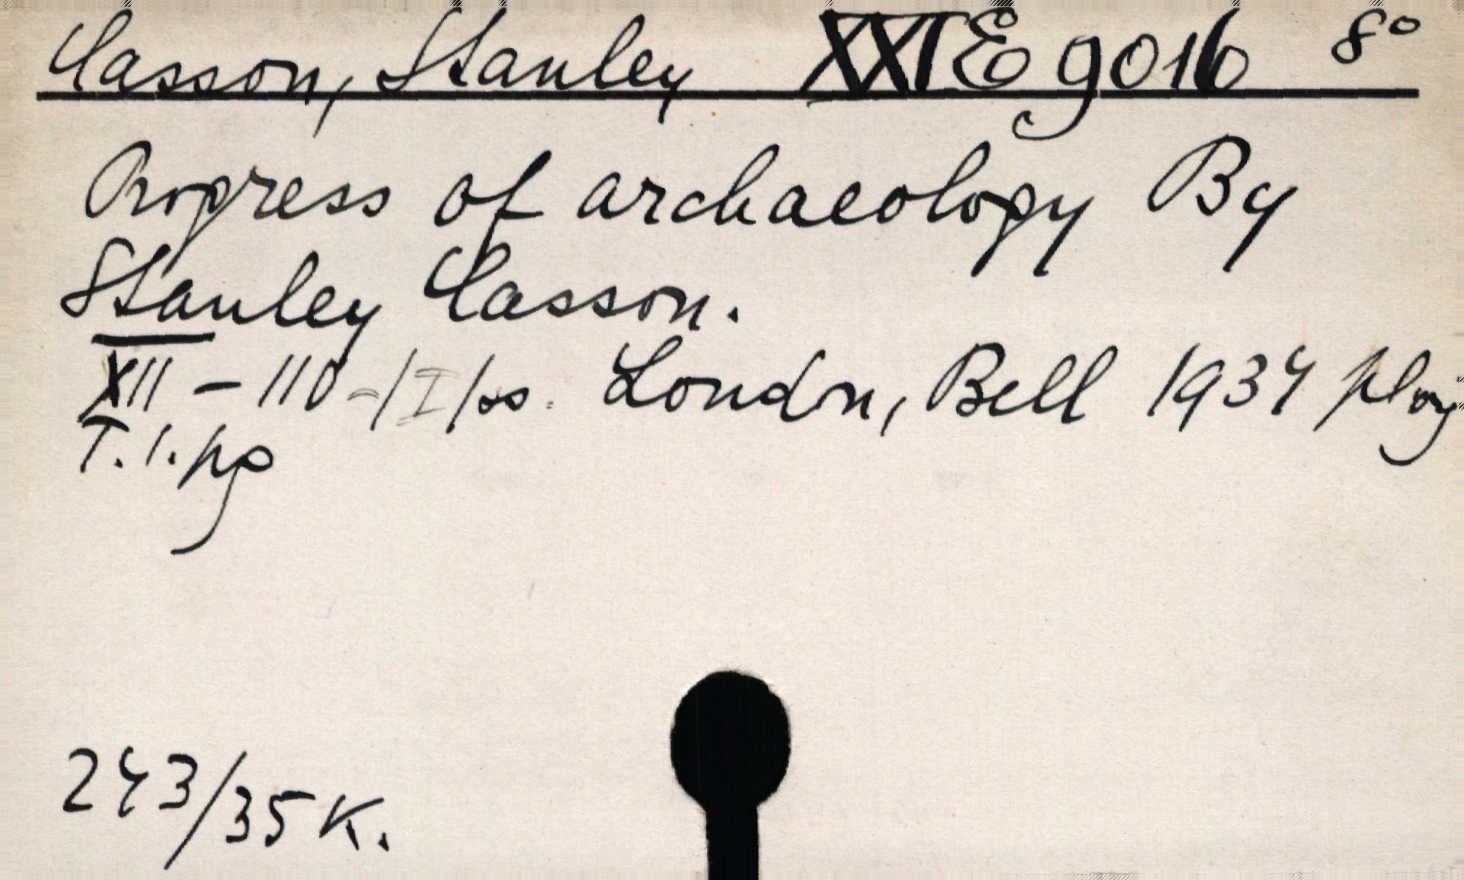 Casson, Stanley XXI E 9016 8°
Progress of archaeology By
Stanley Casson.
XII – 110 – /I/ ss. London, Bell 1934
T. 1. pg
243/35 K.